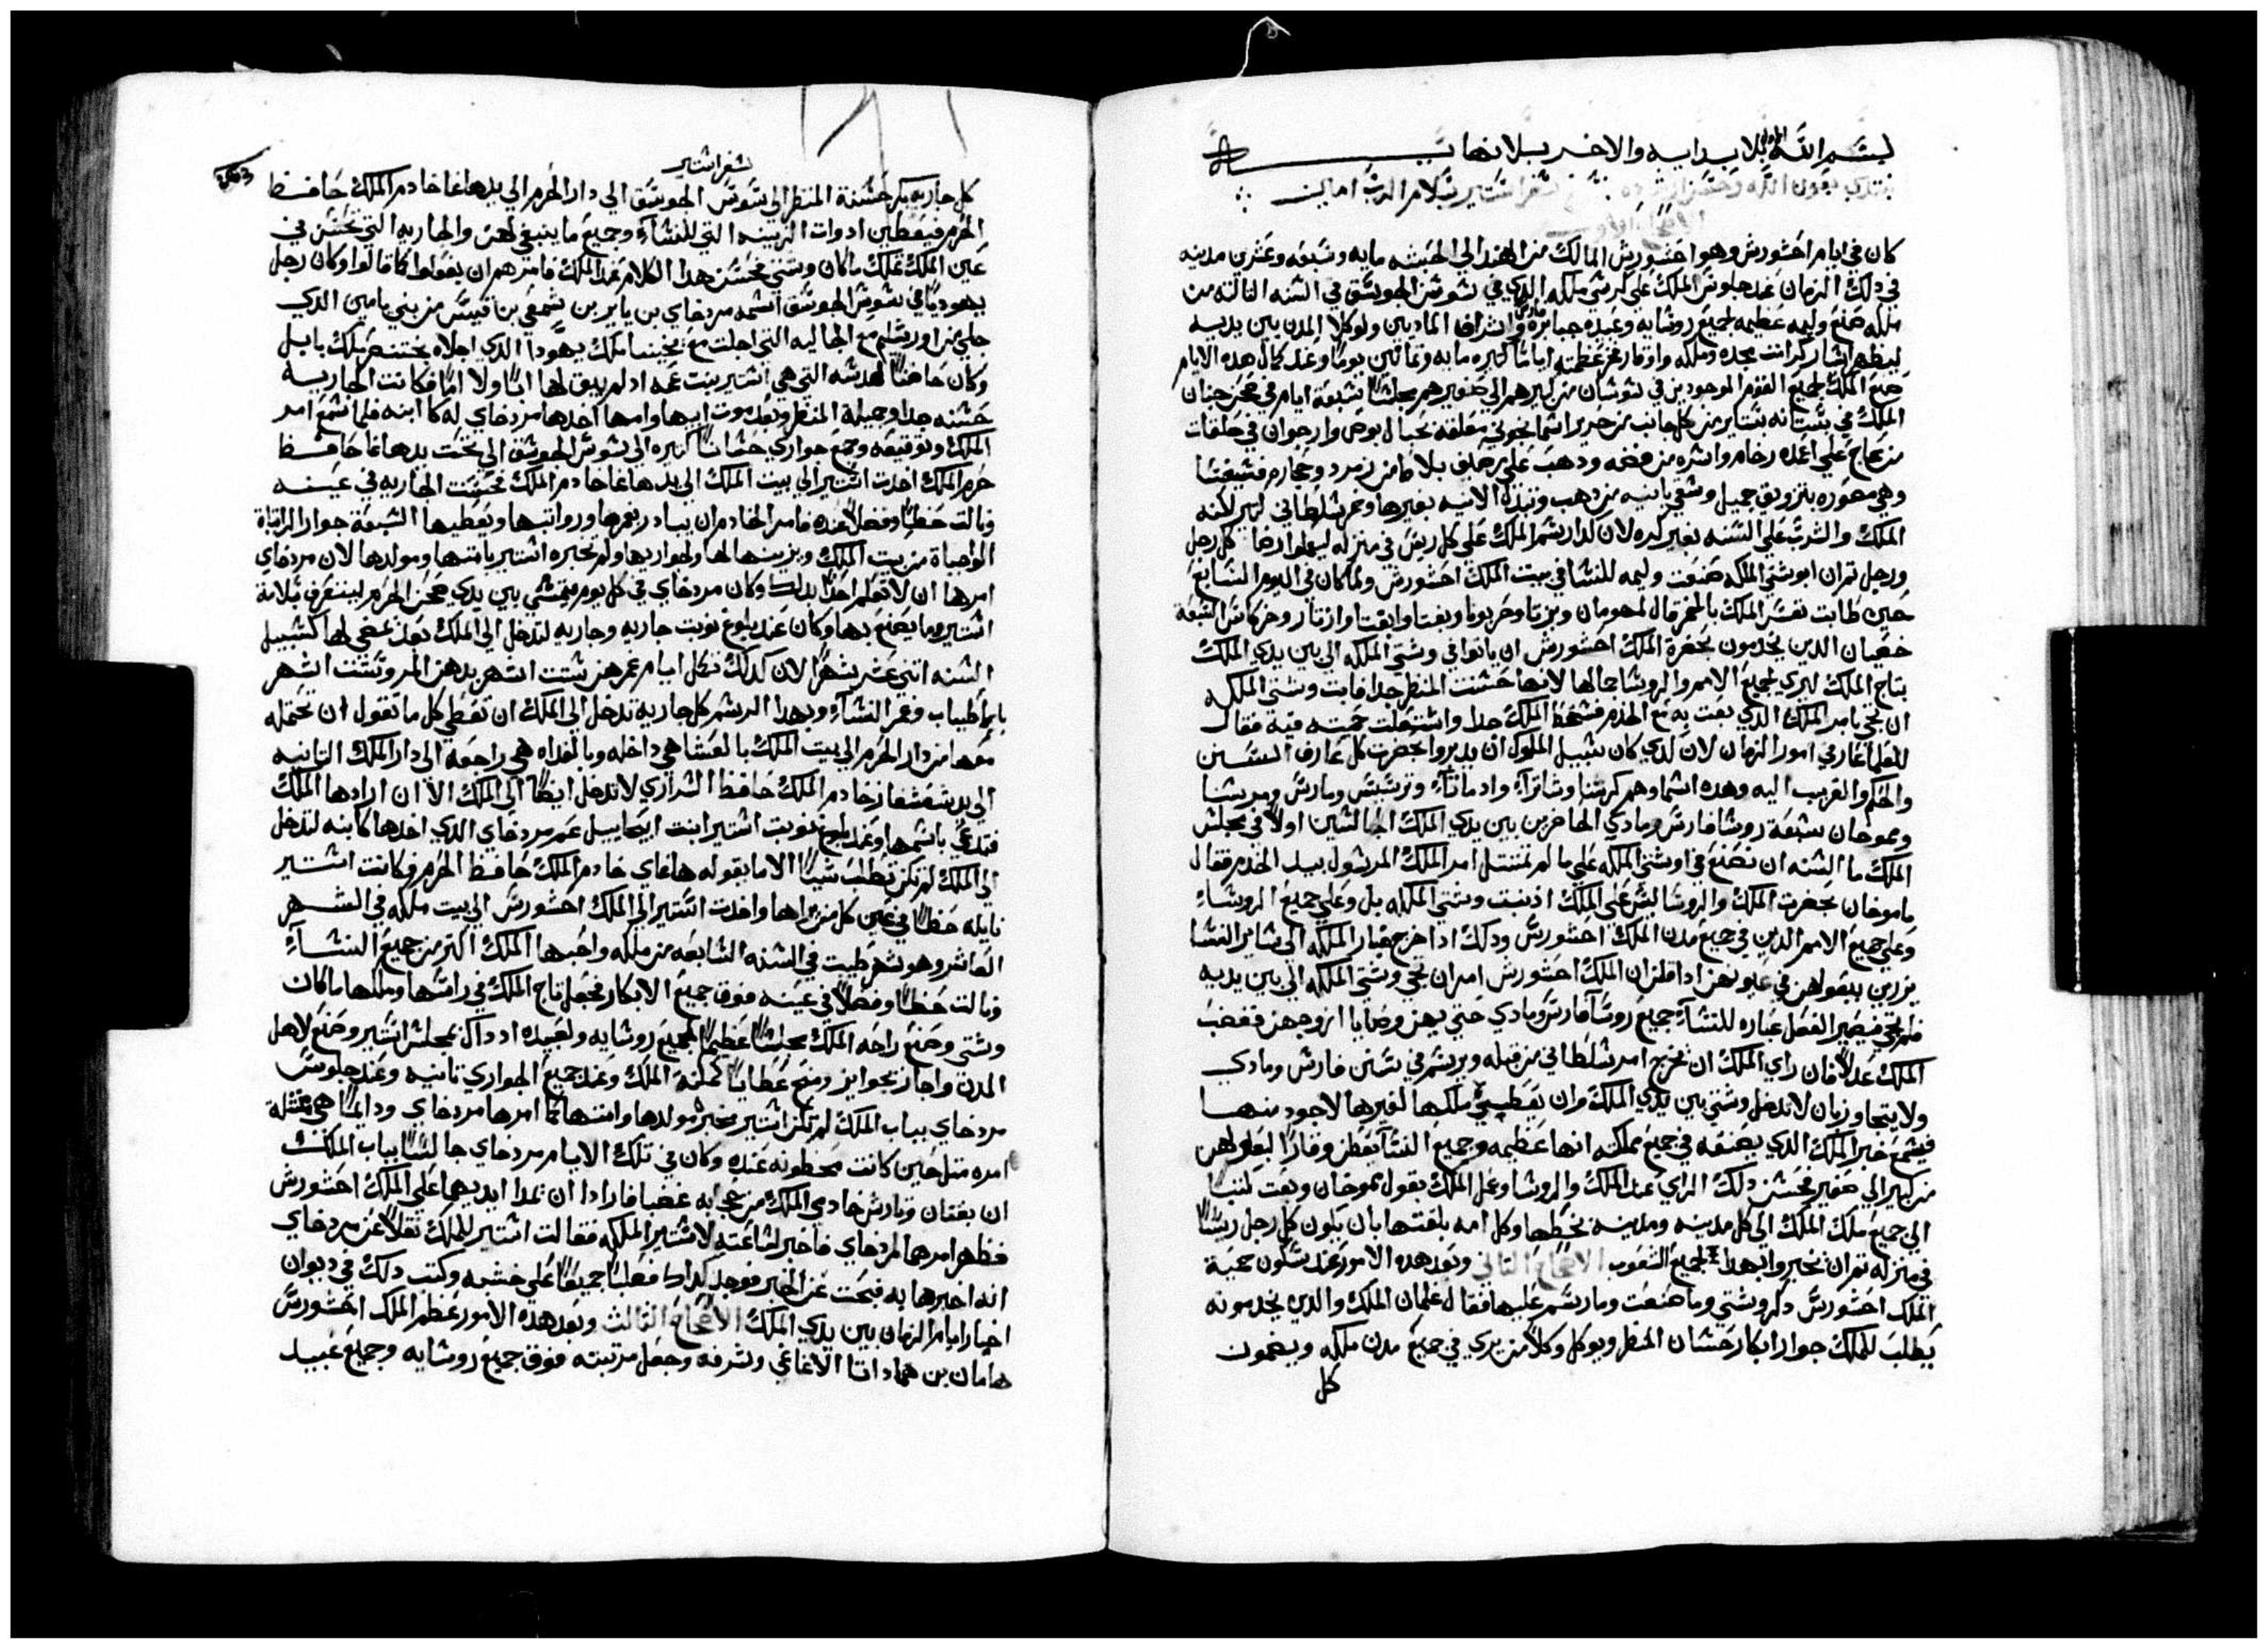 بسم الله الاول بلا بدايه والاخر بلا نهايه
نبتدي بعون الله وحسن ارشاده بنسخ سفر استير بسلام الرب امين
الاصحاح الاول
كان في ايام احشورش وهو احشورش المالك من الهند الي الحبشه مايه وسبعه وعشرين مدينه
في دلك الزمان عند جلوس الملك علي كرسي ملكه الدي في شوشن الجوسق في السنه التالته من
ملكه صنع وليمه عظيمه لجميع روسايه وعبيده جبابرة واشراف المادين ووكلا المدن بين يديه
ليظهر كرامت مجده وملكه واوقار عظمته اياما كتيره مايه وتمانين يوما وعند كمال هده الايام
صنع الملك لجميع القوم الموجودين في شوشان من كبيرهم الي صغيرهم مجلسا سبعة ايام في صحن جنان
الملك في بستانه ستاير من كل جانب من حرير اسمانجوني معلقه بحبال بوص وارجوان في حلقات
من عاج علي اعمده رخام واسره من فضه ودهب علي بلاط من زمرد وحجاره
وهي مصوره بتزويق جميل وسقي بانيه من دهب وتبدل الانيه بغيرها وخمر سلطاني كتير لانه
الملك والشرب علي السنه بغير كره لان كدا رسم الملك علي كل ريس في منزله ليعملوا رضا كل رجل
ورجل تم ان ابوشتي الملكه صنعت وليمه للنسا في بيت الملك احشورش ولما كان في اليوم السابع
حين طابت نفس الملك بالخمر قال لمهومان وبزتا وحربونا وبغتا وابغتا وازتار وخركاس السبعة
خصيان الدين يخدمون بحضرة الملك احشورش ان ياتوا في وشتي الملكه الي بين يدي الملك
بتاج الملك ليري لجميع الامم والروسا جمالها لانها حسنت المنظر جدا فابت وشتي الملكه
ان تجي بامر الملك الدي بعت به مع الخدم فسخط الملك جدا واشتعلت حميته فيه فقال
للعلما عارفي امور الزمان لان لدي كان سبيل الملوك ان يديروا بحضرت كل عارف السنن
والحكم والقريب اليه وهده اسماوهم كرشنا وشاتراة وادماتاة وترشيش ومارس ومرسنا
ومموخان سبعة روسا فارس ومادي الحاضرين بين يدي الملك الجالسين اولا في مجلس
الملك ما السنه ان نصنع في اوشتي الملكه علي ما لم تمتتل امر الملك المرسول بيد الخدم فقال
ماموخان بحضرت الملك والروسا ليس علي الملك ادنبت وشتي الملكه بل وعلي جميع الروسآء
وعلي جميع الامم الدين في جميع مدن الملك احشورس ودلك ادا خرج خبار الملكه الي ساير النسا
يزرين ببعولهن في عيونهن ادا قلن ان الملك احشورش امر ان تجي وشتي الملكه الي بين يديه
فلم تجي فيصير الفعل عباره للنسآء جميع روسآ فارس ومادي حتي يهن وصايا ازوجهن فغضب
الملك عدلا فان راي الملك ان يخرج امر سلطاني من قبله ويرسم في سنن فارس ومادي
ولا يتجاوز بان لا تدخل وشتي بين يدي الملك وان يعطي ملكها لغيرها لاجود منها
فيسمع خبر الملك الدي يصنعه في جميع مملكته انها عظيمه وجميع النسآ يعطن وقارا لبعولهن
من كبير الي صغير فحسن دلك الراي عند الملك والروسا وعمل الملك بقول مموخان وبعت كتبا
الي جميع ملك الملك الي كل مدينه ومدينه بخطها وكل امه بلغتها بان يكون كل رجل ريسا
في منزله تم ان تخبروا بهدا لجميع الشعوب الاصحاح التاني وبعد هده الامور عند سكون حمية
الملك احشورس دكر وشتي وما صنعت وما رسم عليها فقال غلمان الملك والدي يخدمونه
يطلب للملك جوارا بكار حسان المنظر ويوكل وكلا من يري في جميع مدن ملكه ويضمون
كل
سفر استير
كل جاريه بكر حسنة المنظر الي شوشن الجوسق الي دار الحرم الي يد هاغا خادم الملك حافظ
الحرم فيعطين ادوات الزينه التي للنسآء وجميع ما ينبغي لهن والجاريه التي تحسن في
عين الملك تملك مكان وشتي فحسن هدا الكلام عند الملك فامرهم ان يفعلوا كما قالوا وكان رجل
يهوديا في شوشن الجوسق اسمه مردخاي بن يايير بن شمعي بن قيس من بني يامين الدي
جلي من اورشليم مع الجاليه التي اجلت مع يخنيا ملك يهودا الدي اجلاه بختنصر ملك بابل
وكان حاضنا لهدسه التي هي استير بنت عمه اد لم يبق لها ابا ولا اما فكانت الجاريه
حسنه جدا وجميلة المنظر وبعد موت ابيها وامها اخدها مردخاي له كا ابنه فلما سمع امر
الملك وتوقيعه وجمع جواري حسانا كتيره الي شوشن الجوسق الي تحت يد هاغا حافظ
حرم الملك اخدت استير الي بيت الملك الي يد هاغا خادم الملك فحسنت الجاريه في عينه
ونالت حظا وفضلا عنده فامر الخادم ان يبادر بعمرها ورواتبها ويعطيها السبعة جوار المراتاة
الواجباة من بيت الملك ويزينها لها ولجواريها ولم تخبره استير بامتها ومولدها لان مردخاي
امرها ان لا تعلم احدا بدلك وكان مردخاي في كل يوم يتمشي بين يدي صحن الحرم ليتعرف سلامة
استير وما يصنع بها وكان عند بلوغ نوبت جاريه وجاريه لتدخل الي الملك بعد تمضي لها كسبيل
السنه اتني عشر شهرا لان كدلك تكمل ايام عمرهن ستت اشهر بدهن المر وستت اشهر
باطياب وعمر النسآء وبهدا الرسم كل جاريه تدخل الي الملك ان تعطي كل ما تقول ان تحتمله
معها من دار الحرم الي بيت الملك بالعشا هي داخله وبالغداه هي راجعة الي دار الملك التانيه
الي يد شعشغاز خادم الملك حافظ السراري لا تدخل ايضا الي الملك الا ان ارادها الملك
فتدعي باسمها وعند بلوغ نوبت استير ابنت ابيحاييل عم مردخاي الدي اخدها كابنه لتدخل
الي الملك لم تكن تطلب شيا الا ما يقوله هاغاي خادم الملك حافظ الحرم وكانت استير
نايله حظا في عين كل من يراها واخدت استير الي الملك احشورس الي بيت ملكه في الشهر
العاشر وهو شهر طيبت في السنه السابعه من ملكه واحبها الملك اكتر من جميع النسآء
ونالت حظا وفضلا في عينه فوق جميع الابكار فجعل تاج الملك في راسها وملكها مكان
وشتي وصنع راحة الملك مجلسا عظيما لجميع روسايه ولعبيده اد داك مجلس استير وصنع لاهل
المدن واجاز بجوايز ومنح عطايا كمكنة الملك وعند جميع الجواري تانيه وعند جلوس
مردخاي بباب الملك لم تكن استير مخبره مولدها وامتها كما امرها مردخاي ودايما هي ممتتلة
امره متل حين كانت محظونه عنده وكان في تلك الايام مردخاي جالسا بباب الملك
ان بغتان وتارش خادمي الملك من حجابه غضبا فارادا ان يمدا ايديهما علي الملك احشورش
فظهر امرهما لمردخاي فاخبر لساعته لاستير الملكه فقالت استير للملك نقلا عن مردخاي
انه اخبرها به فبحت عن الخبر فوجد كدلك فصلبا جميعا علي خشبه وكتب دلك في ديوان
اخبار ايام الزمان بين يدي الملك الاصحاح التالت وبعد هده الامور عظم الملك احشورس
هامان بن همداتا الاغاغي وشرفه وجعل مرتبته فوق جميع روسايه وجميع عبيد